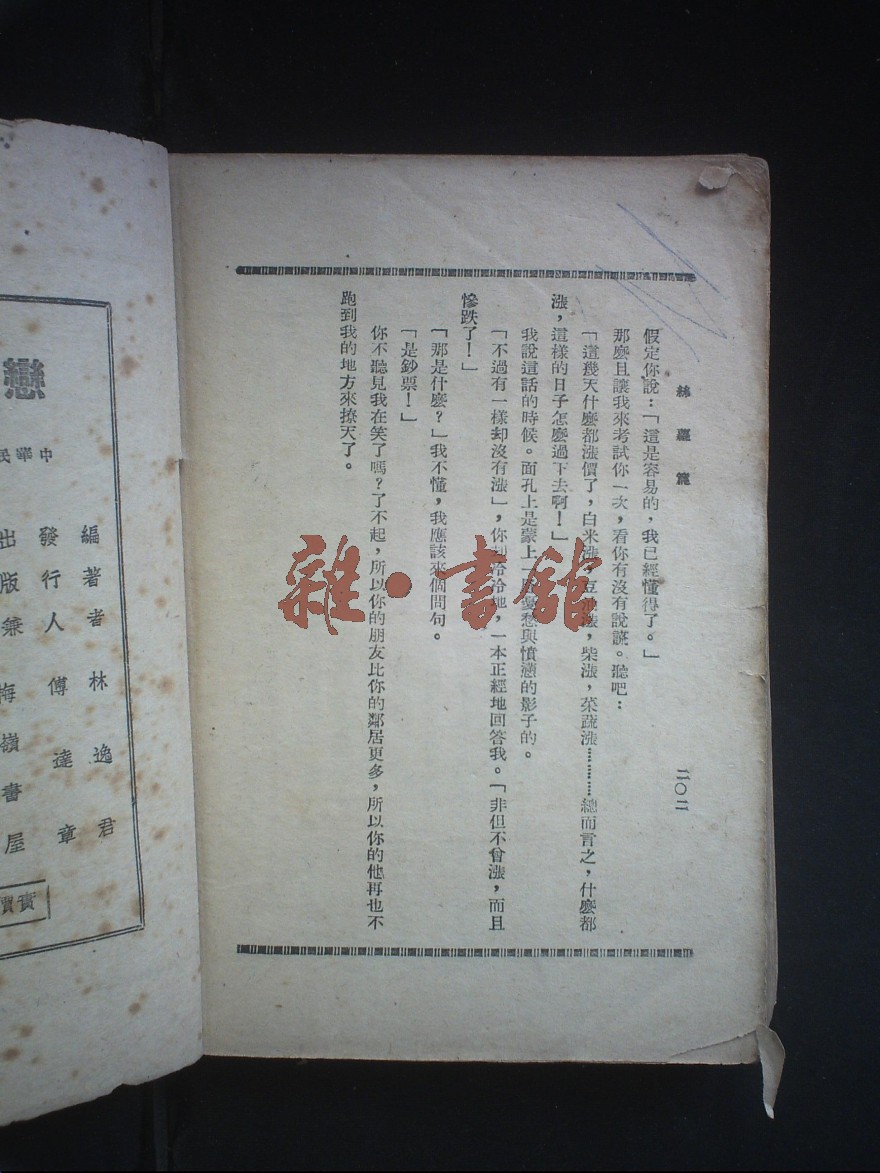 絲蘿篇
二〇二
假定你說：「這是容易的，我已經懂得了。」
那麼且讓我來考試你一次，看你有沒有說謊。聽吧：
「這幾天什麼都漲價了，白米漲，豆油漲，柴漲，菜蔬漲………總而言之，什麼都
漲，這樣的日子怎麼過下去啊！」
我說這話的時候。面孔上是蒙上一層憂愁與憤懣的影子的。
「不過有一樣却沒有漲」，你則冷冷地，一本正經地回答我。「非但不曾漲，而且
慘跌了！」
「那是什麼？」我不懂，我應該來個問句。
「是鈔票！」
你不聽見我在笑了嗎？了不起，所以你的朋友比你的鄰居更多，所以你的他再也不
跑到我的地方來撩天了。
雜·書館
戀
中華民
編著者 林逸君
發行人 傅達章
出版兼 梅嶺書屋
實價